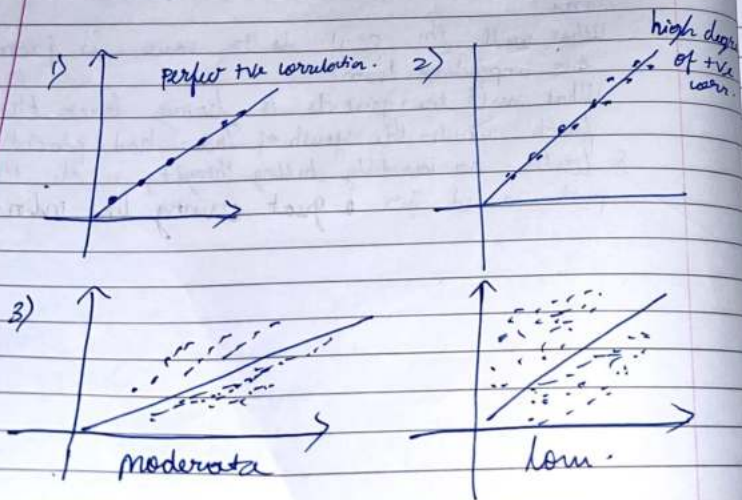 1) perfect +ve correlation.
2) high degr
of +ve
corr.
3)
moderate
low.